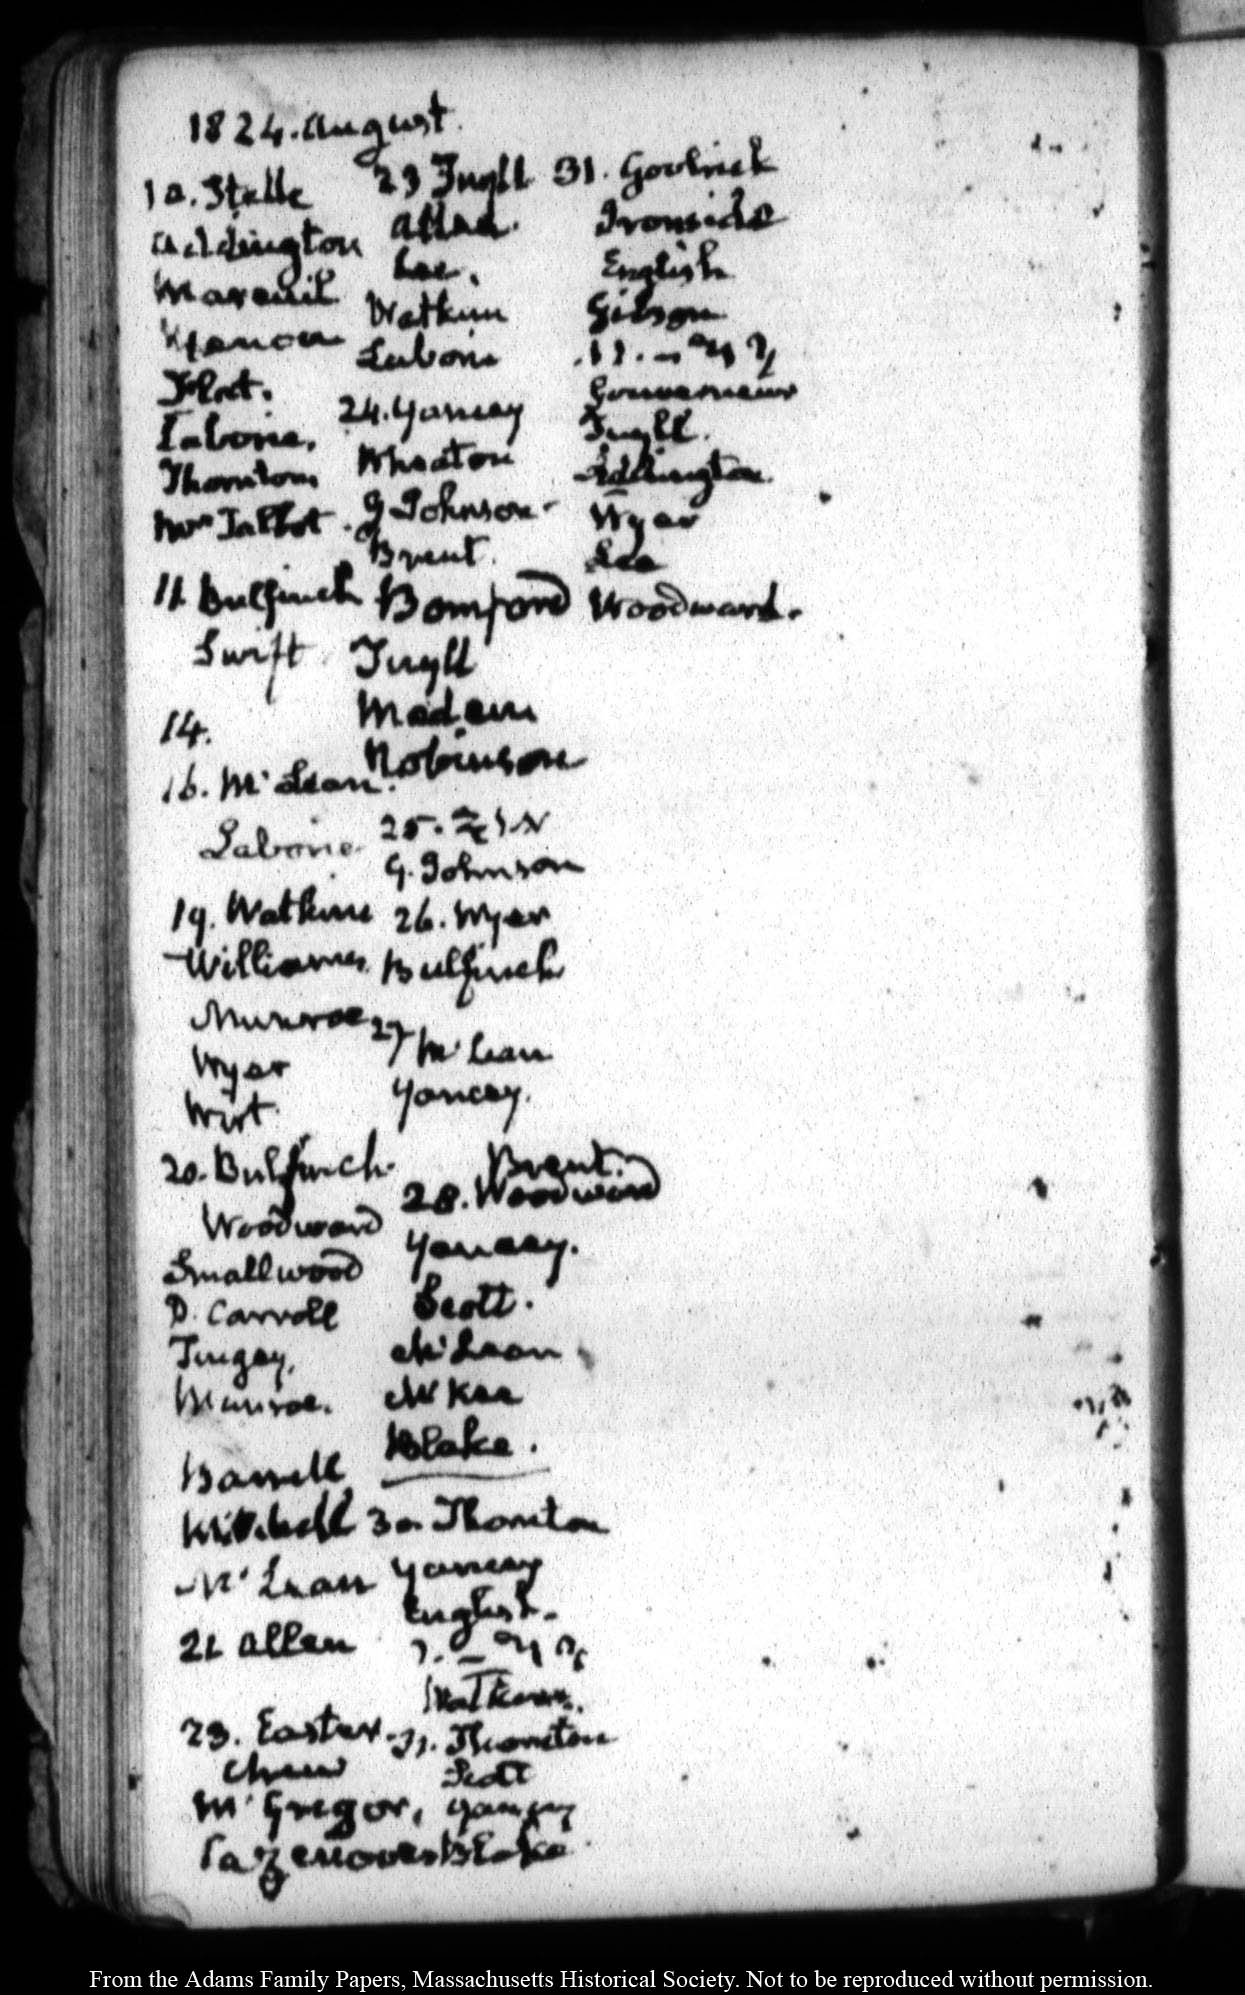 1824. August.
10. Stelle
Addington
Mareuil
Kjancou
Flet.
Laborie.
Thornton
Mrs Talbot.
11. Bulfinch
Swift
14.
16. McLean.
Laborie
19. Watkins
Williams
Munroe
Wyer
Wirt.
20. Bulfinch
Woodward
Smallwood
D. Carroll
Tingey.
Munroe.
Barrell
Mitchell
McLean
21 Allen
23. Easter
Chew
McGregor.
Cazenove
23 Tuyll
Allen.
Lee.
Watkins
Laborie
24. Yancey
Wheaton
G Johnson
Brent.
Bomford
Tuyll
Robinson
25.
G. Johnson
26. Wyer
Bulfinch
27 McLean
Yancey.
Brent.
28. Woodward
Yancey.
Scott.
McLean
McKee
Blake.
30. Thornton
Yancey
English.
Watkins.
31. Thornton
Scott
Yancey
Blake
31. Goolrick
Ironside
English
Gibson
Gouverneur
Tuyll.
Addington.
Wyer
Lee
Woodward.
From the Adams Family Papers, Massachusetts Historical Society. Not to be reproduced without permission.